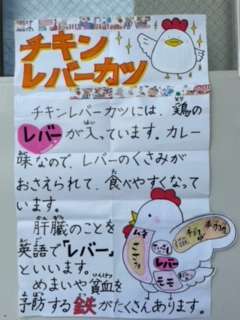 チキン
レバーカツ
チキンレバーカツには、鶏の
レバーが入っています。カレー
味なので、レバーのくさみが
おさえられて、食べやすくなって
います。
肝臓のことを
英語で「レバー」
といいます。
めまいや貧血を
予防する鉄がたくさんあります。
ムネ
ささみ
レバー
モモ